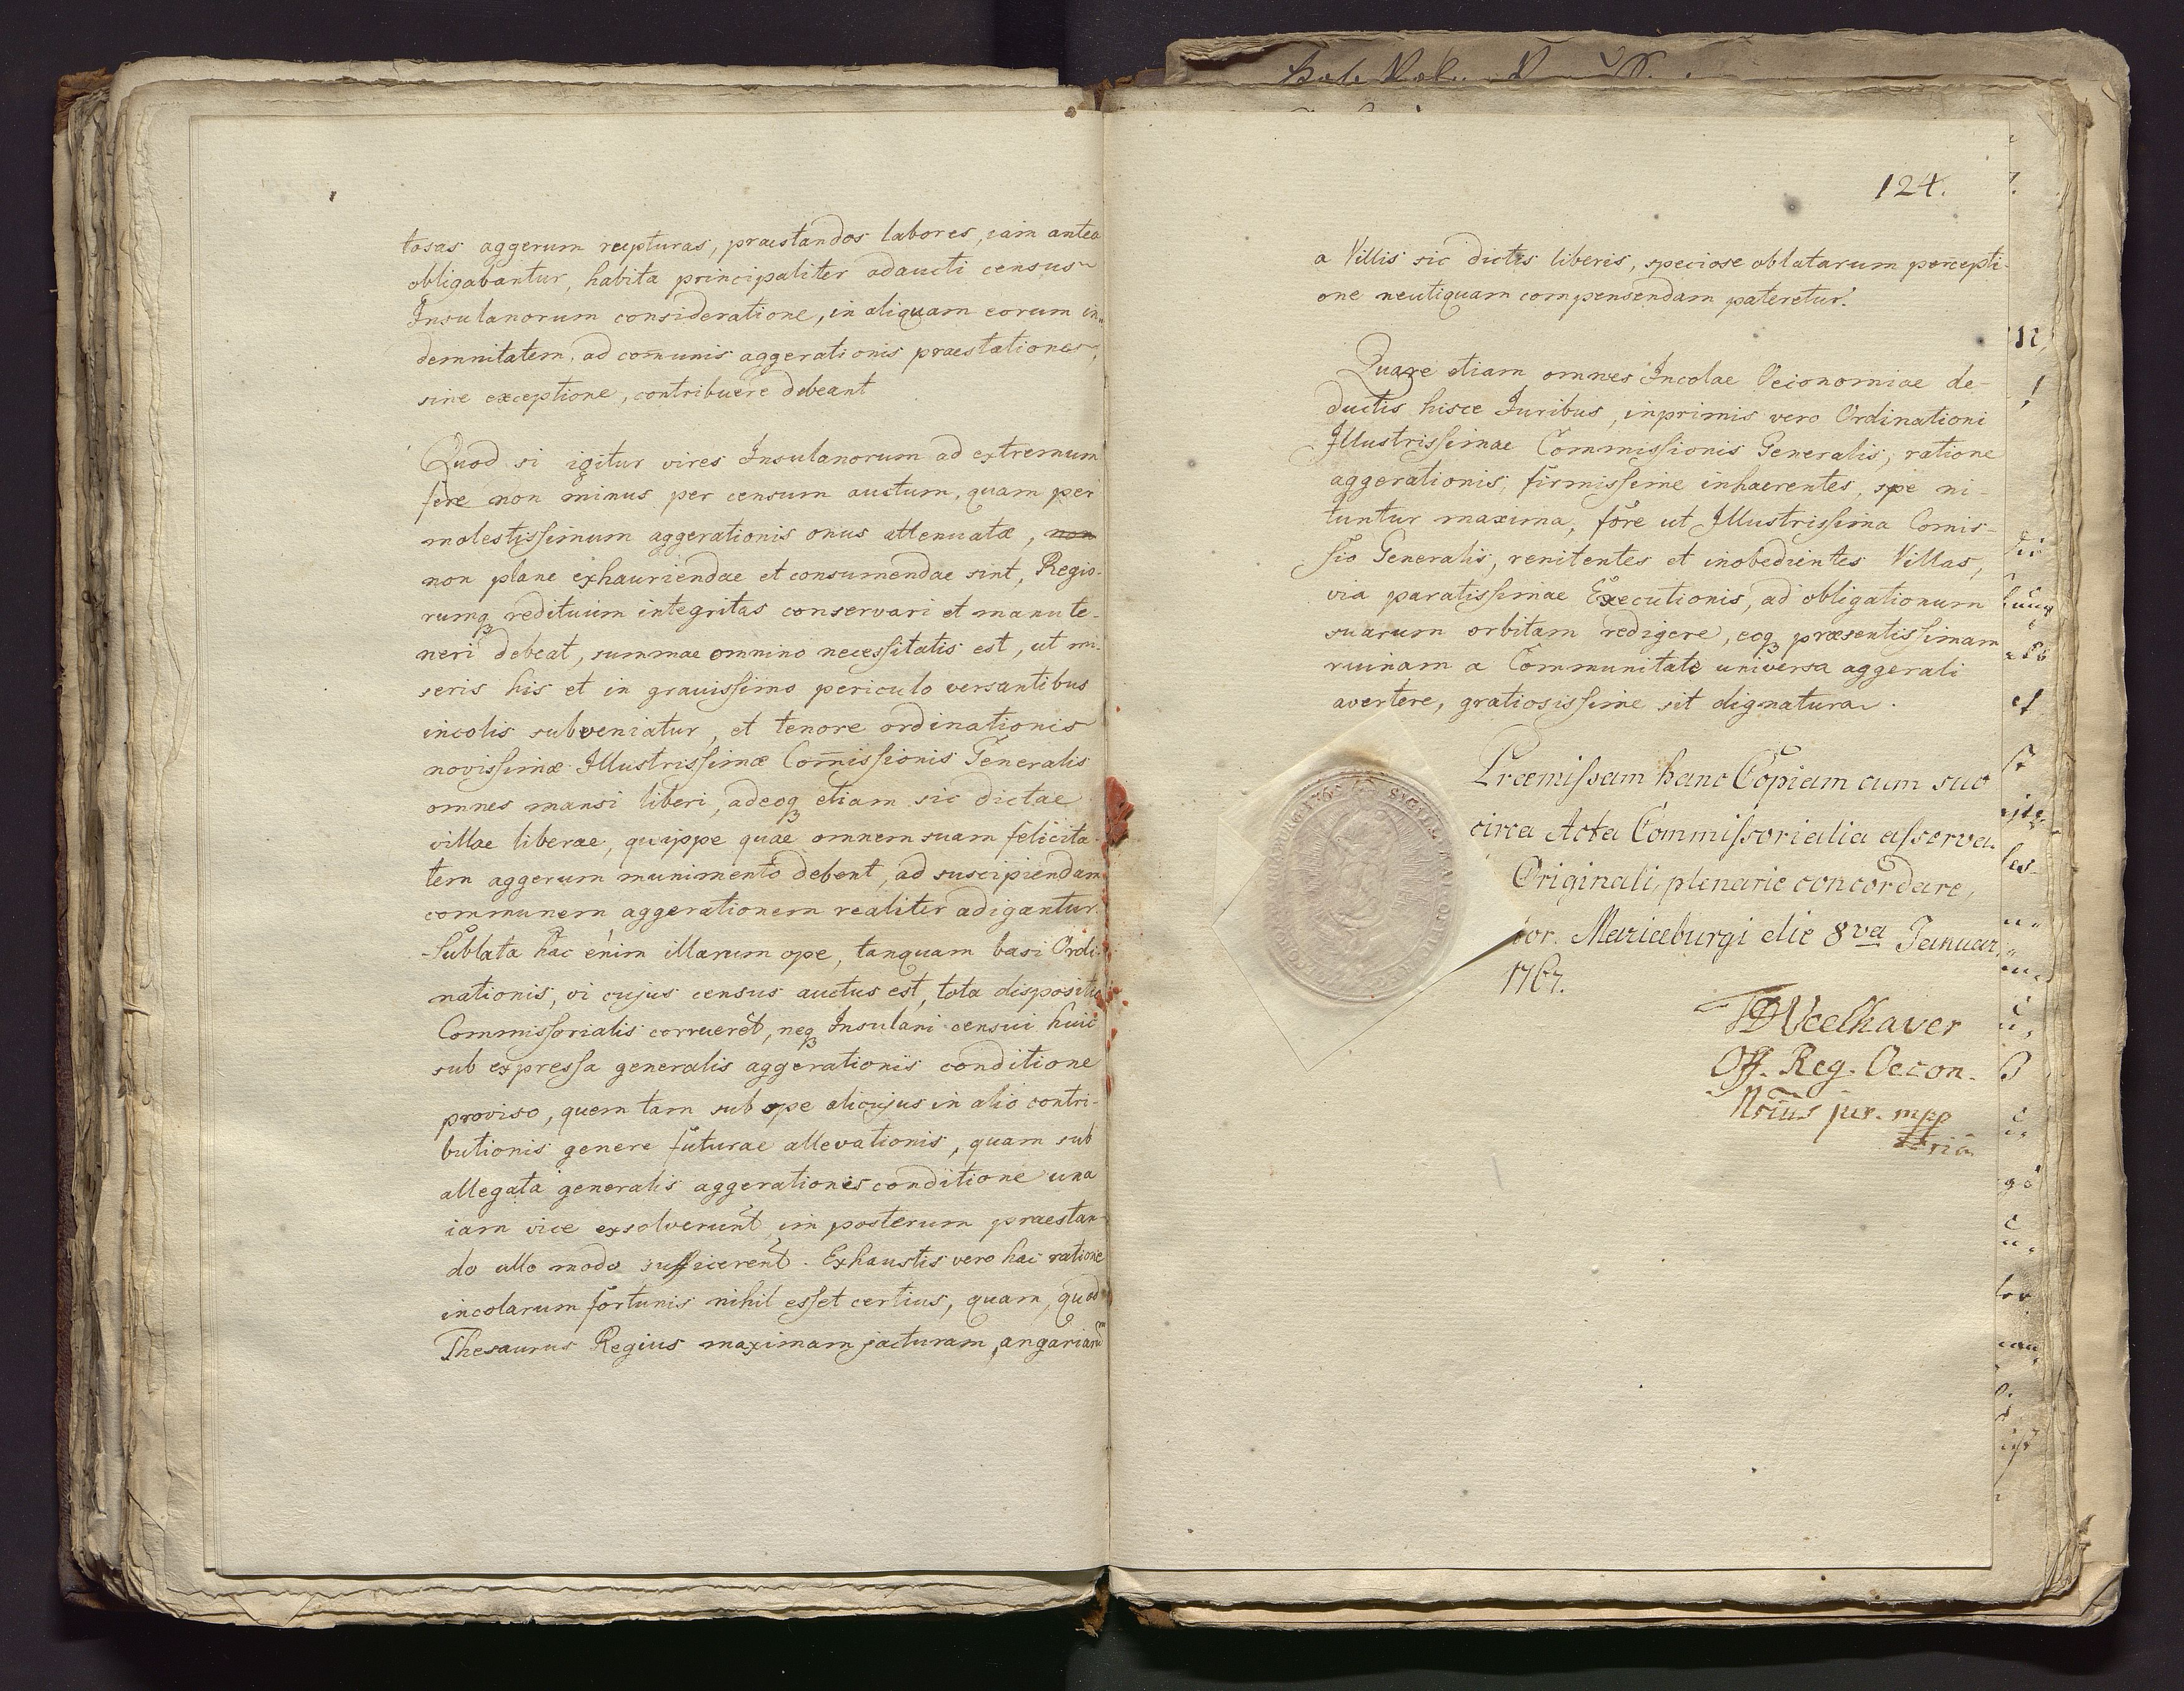 tosas aggerum rupturas, praestandos labores, iam antea
obligabantur, habita principaliter adaucti census
Insulanorum consideratione, in aliquam eorum in„
demnitatem, ad com̄unis aggerationis praestationes,
sine exceptione, contribuere debeant
Quod si igitur vires Insulanorum ad extremum
fere non minus per censum auctum, quam per
molestissimum aggerationis onus attenuatæ, non
non plane exhauriendae et consumendae sint, Regio-
rumq₃ redituum integritas conservari et manute-
neri debeat, summae omnino necessitatis est, ut mi-
seris his et in gravissimo periculo versantibus
incolis subveniatur, et tenore ordinationis
novissimæ Illustrissimæ Com̄issionis Generalis
omnes mansi liberi, adeoq₃ etiam sic dictae
villae liberae, quippe quae omnem suam felicita-
tem aggerum munimento debent, ad suscipiendam
communem aggerationem realiter adigantur.
Sublata hac enim illarum ope, tanquam basi Ordi-
nationis, vi cujus census auctus est, tota dispositio
Commissorialis corrueret, neq₃ Insulani censui huic
sub expressa generalis aggerationis conditione
proviso, quem tam sub spe alicujus in alio contri-
butionis genere futurae allevationis, quam sub
allegata generalis aggerationis conditione una
iam vice exsolverunt, in posterum praestan-
do ullo modo sufficerent. Exhaustis vero hac ratione
incolarum fortunis nihil esset certius, quam, quod
Thesaurus Regius maximam jacturam, angariarum
124.
a Villis sic dictis liberis, speciose oblatarum percepti-
one neutiquam compensendam pateretur.
Quare etiam omnes Incolae Oeconomiae de-
ductis hisce Juribus, inprimis vero Ordinationi
Illustrissimae Commissionis Generalis, ratione
aggerationis, firmissime inhaerentes, spe ni-
tuntur maxima, fore ut Illustrissima Comis-
sio Generalis, renitentes et inobedientes Villas,
via paratissimae Executionis, ad obligationum
suarum orbitam redigere, eoq₃ præsentissimam
ruinam a Communitate universa aggerali
avertere, gratiosissime sit dignatura.
Præmissam hanc Copiam cum suo
circa Acta Commissorialia asserva.
Originali, plenarie concordare,
Mariæburgi die 8va Januar.
1767.
Off. Reg. Oecon.
Nrius jur. mpp